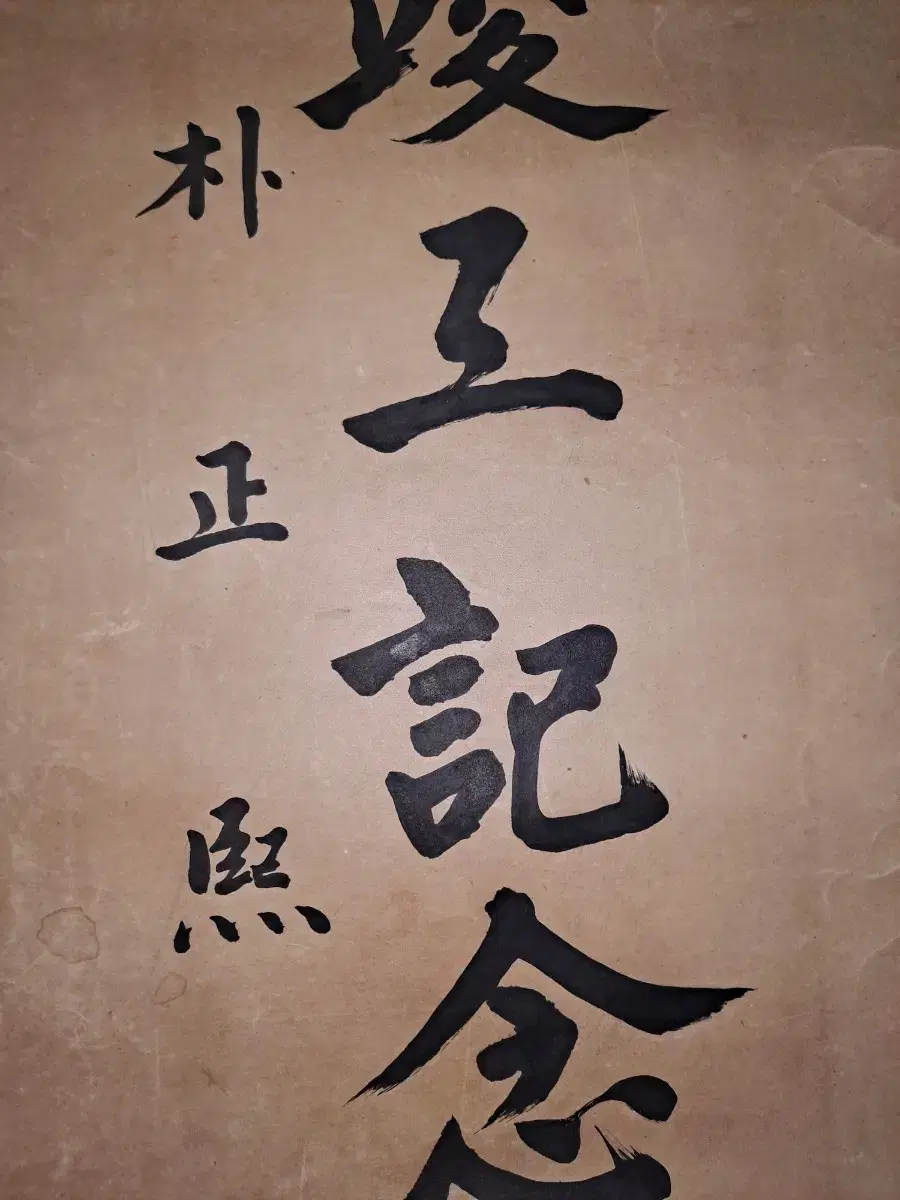 竣工記念
朴正熙